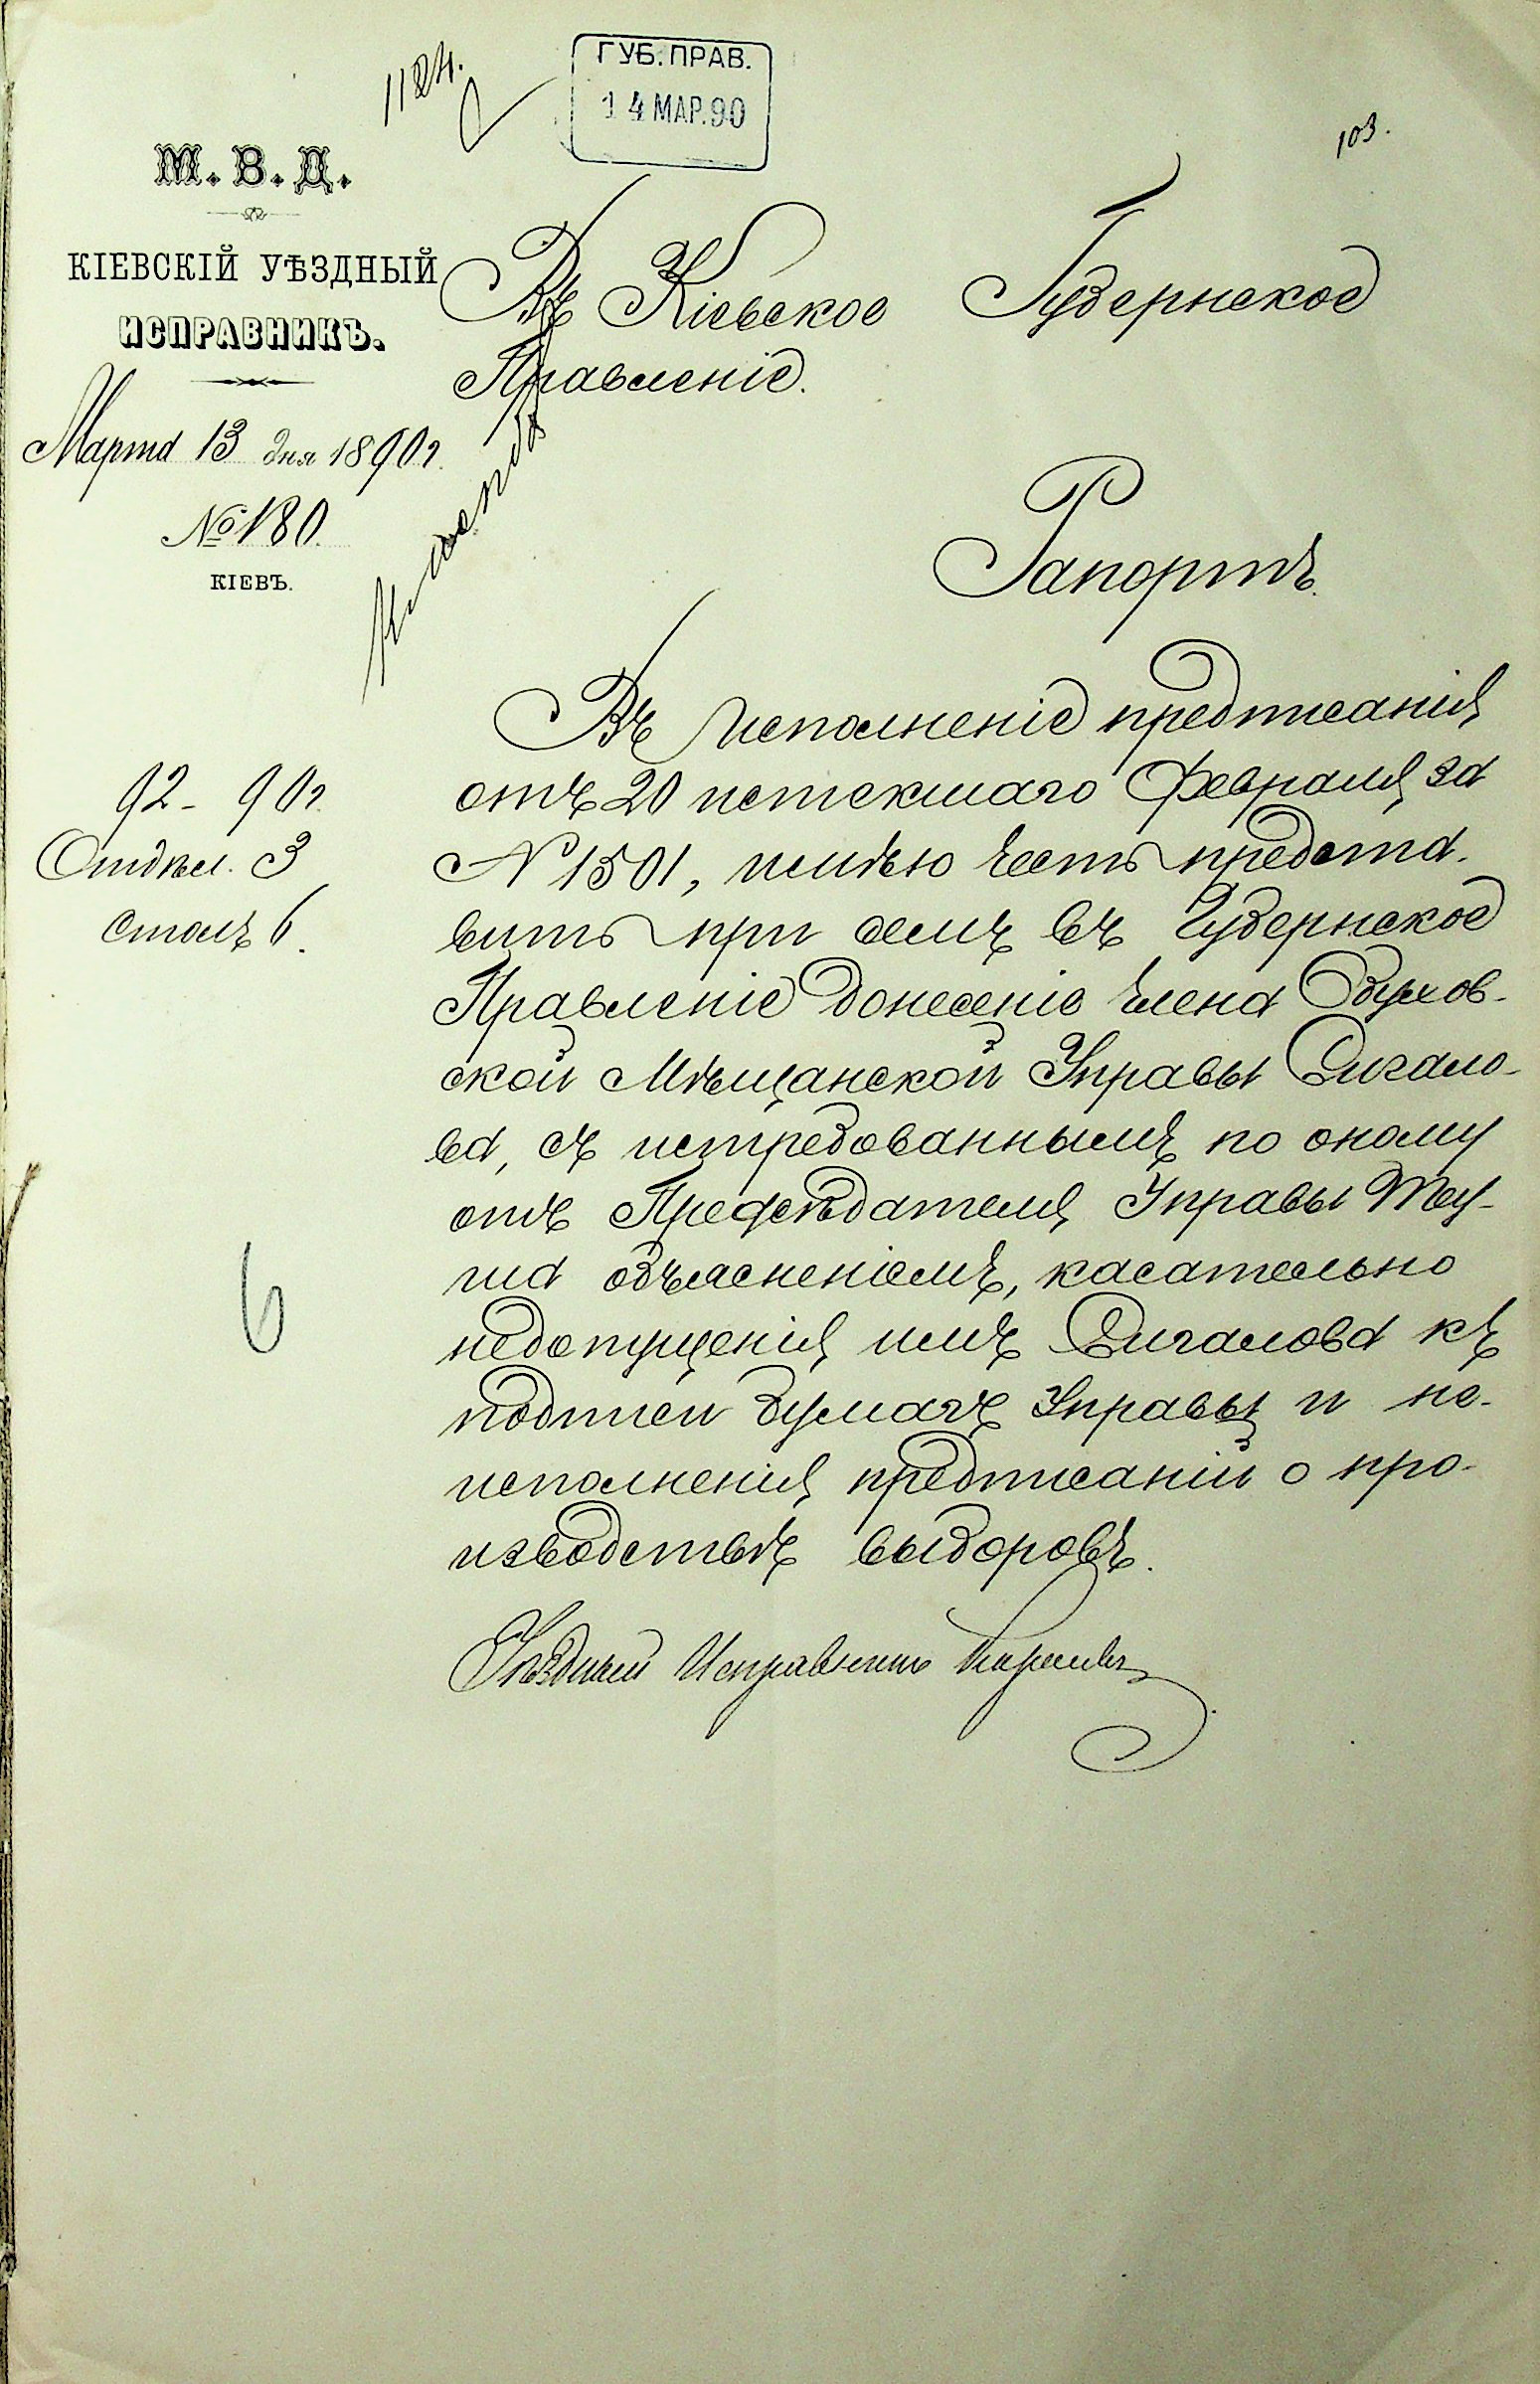 1124.
ГУБ. ПРАВ.
14 МАР. 90
103.
М. В. Д.
КІЕВСКІЙ УѢЗДНЫЙ
ИСПРАВНИКЪ.
Марта 13 дня 1890 г.
№ 180.
КІЕВЪ.
92 - 90 г.
Отдѣл. 3
столъ 6.
6
Въ Кіевское Губернское
Правленіе.
Рапортъ.
Въ исполненіе предписанія
отъ 20 истекшаго Февраля, за
№ 1501, имѣю честь предста-
вить при семъ въ Губернское
Правленіе донесеніе члена
ской Мѣщанской Управы Сигало-
ва, съ истребованнымъ по оному
отъ Предсѣдателя Управы
объясненіемъ, касательно
недопущенія имъ Сигалова къ
подписи бумагъ Управы и не-
исполненія предписаній о про-
изводствѣ выборовъ.
Уѣздный Исправникъ